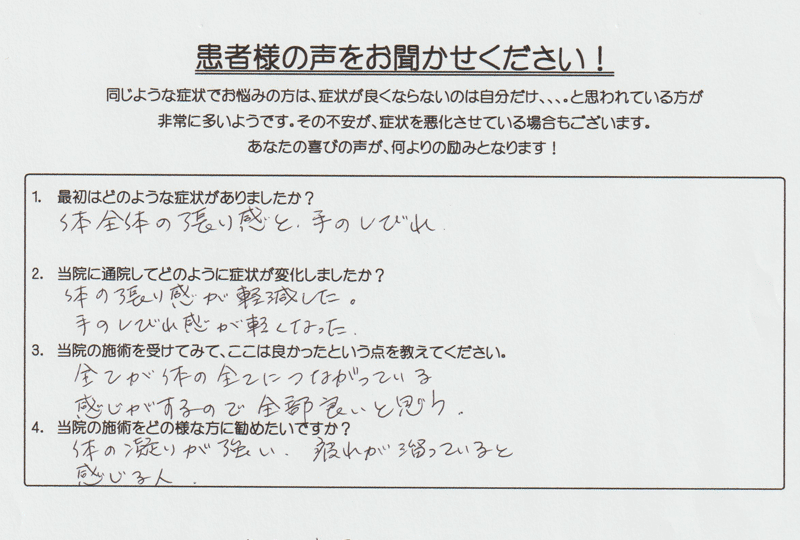 患者様の声をお聞かせください！
同じような症状でお悩みの方は、症状が良くならないのは自分だけ、、、。と思われている方が
非常に多いようです。その不安が、症状を悪化させている場合もございます。
あなたの喜びの声が、何よりの励みとなります！
1. 最初はどのような症状がありましたか？
体全体の張り感と、手のしびれ
2. 当院に通院してどのように症状が変化しましたか？
体の張り感が軽減した。
手のしびれ感が軽くなった.
3. 当院の施術を受けてみて、ここは良かったという点を教えてください。
全てが体の全てにつながっている
感じがするので全部良いと思う.
4. 当院の施術をどの様な方に勧めたいですか？
体の凝りが強い. 疲れが溜っていると
感じる人.